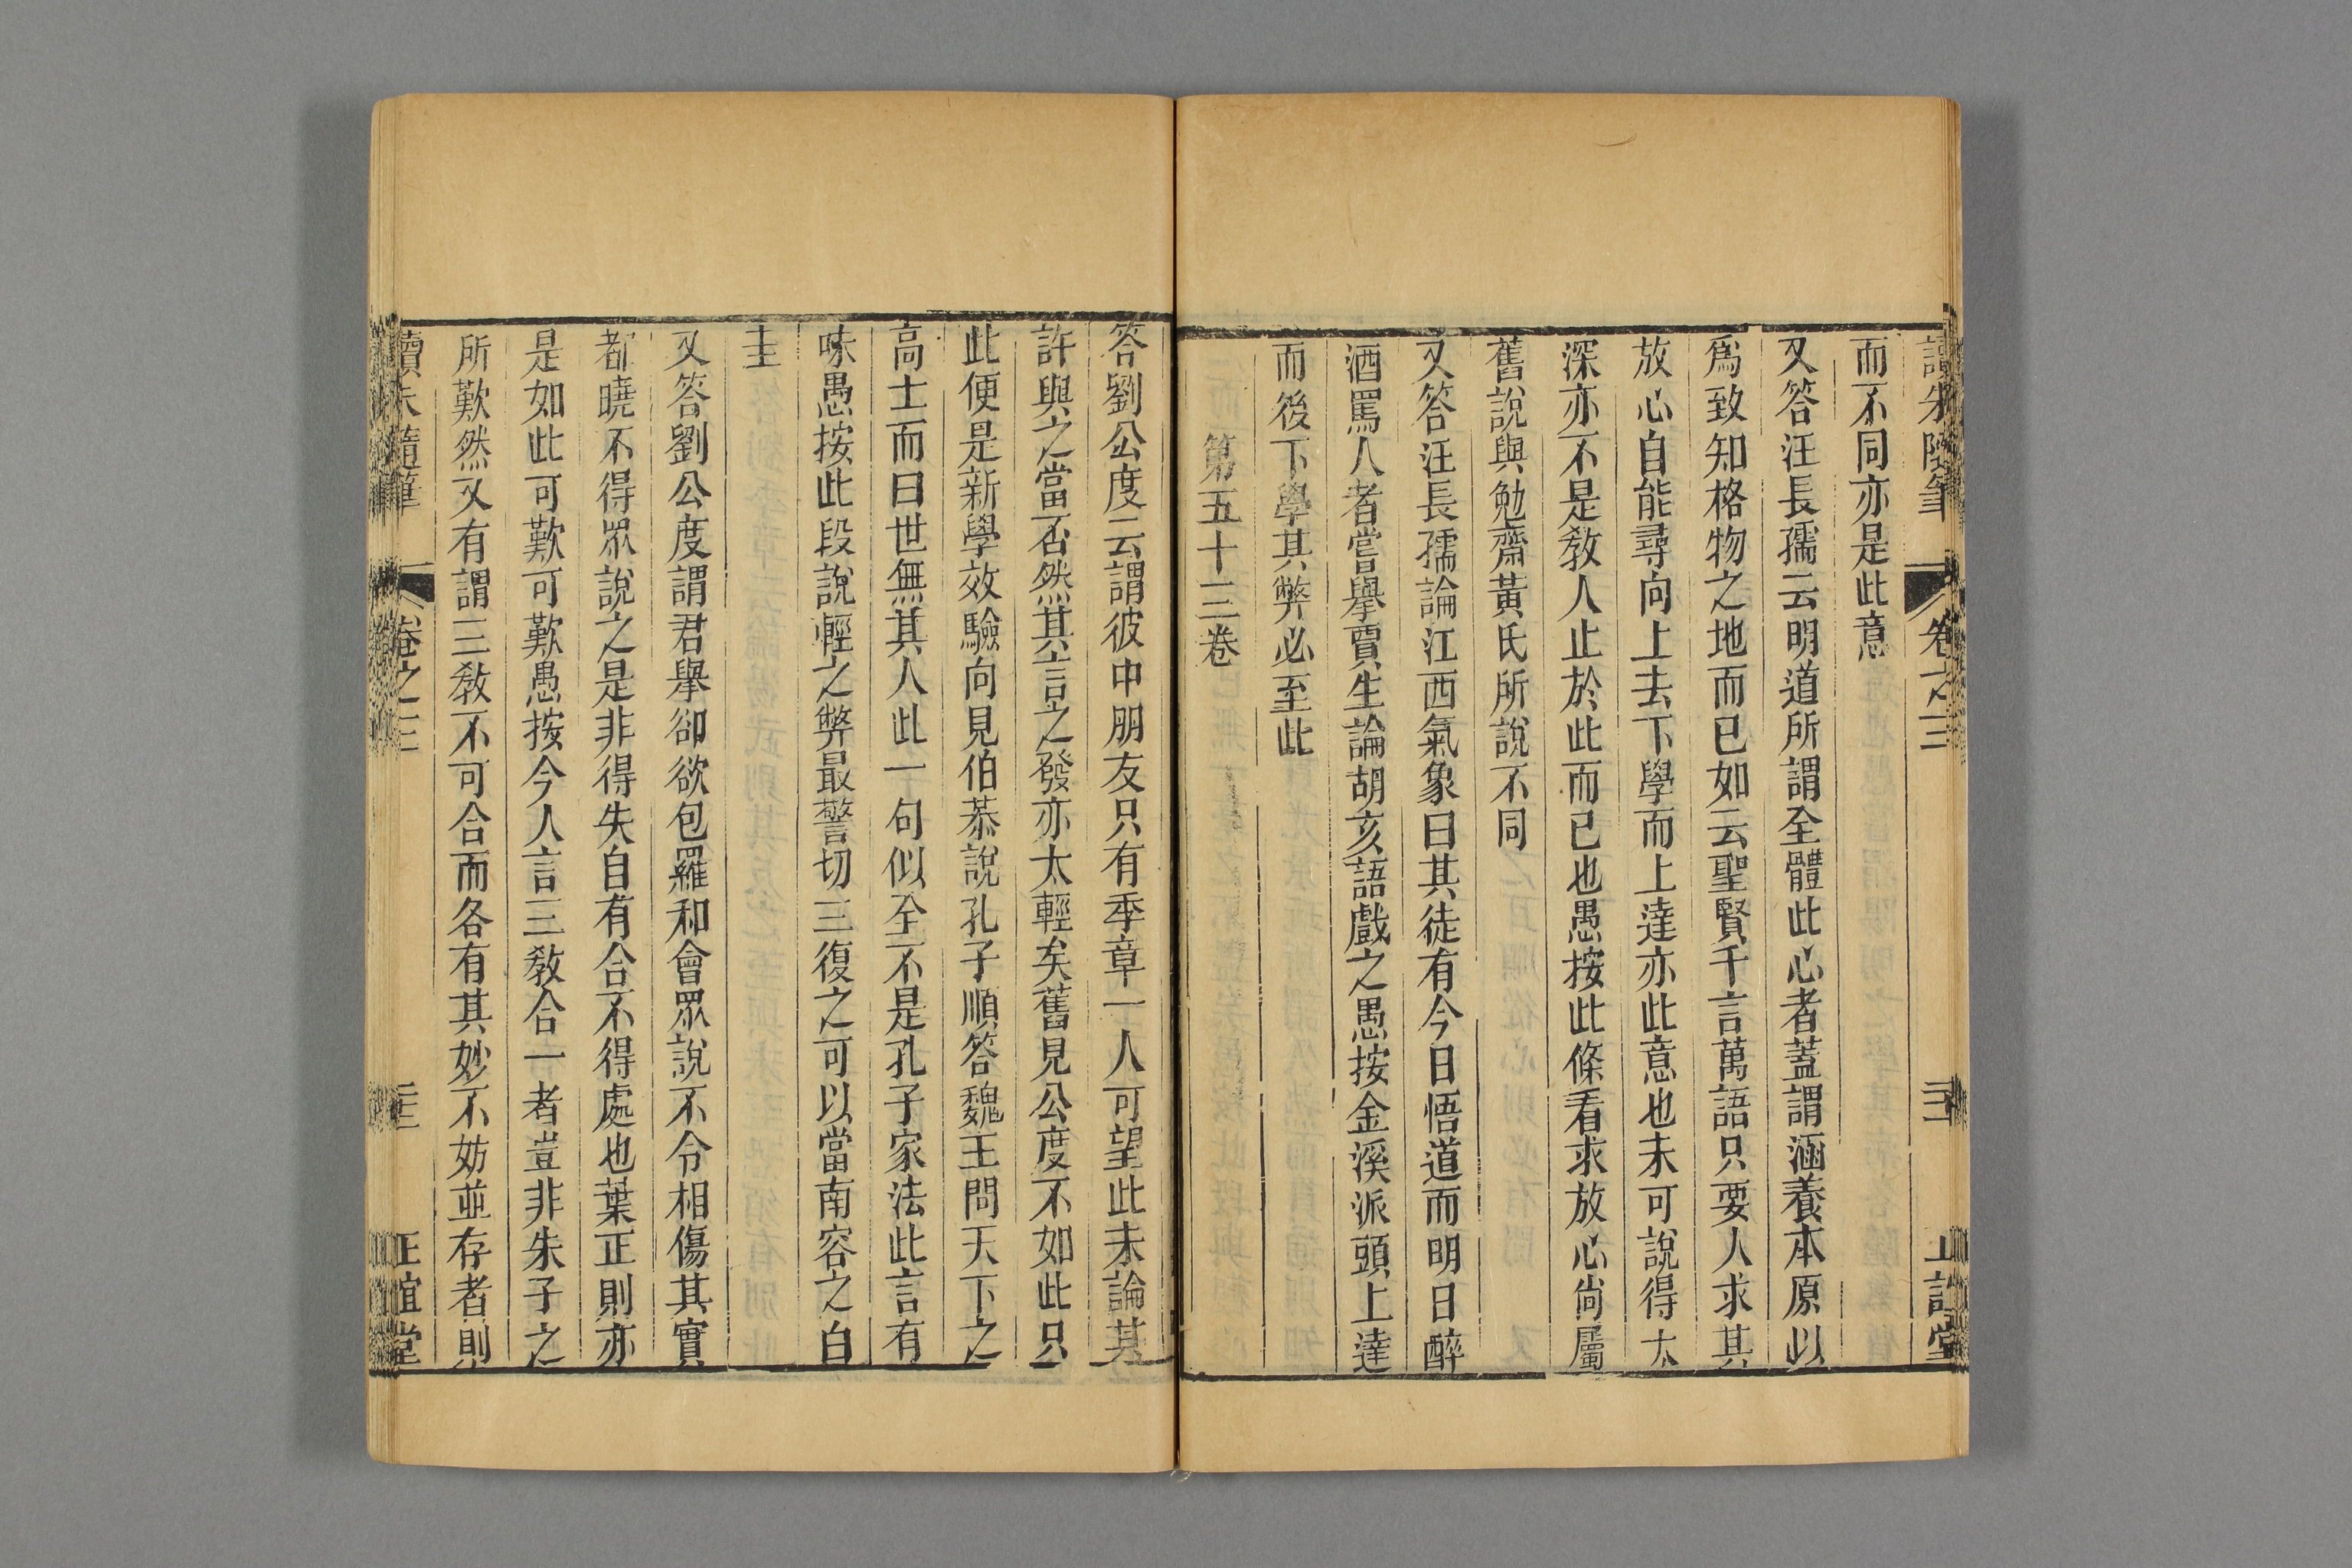 讀朱隨筆 卷之三 三 正誼堂
而不同亦是此意
又答汪長孺云明道所謂全體此心者蓋謂涵養本原以
爲致知格物之地而已如云聖賢千言萬語只要人求其
放心自能尋向上去下學而上達亦此意也未可說得太
深亦不是敎人止於此而已也愚按此條看求放心尙屬
舊說與勉齋黃氏所說不同
又答汪長孺論江西氣象曰其徒有今日悟道而明日醉
酒罵人者嘗擧賈生論胡亥語戲之愚按金溪派頭上達
而後下學其弊必至此
第五十三卷
答劉公度云謂彼中朋友只有季章一人可望此未論其
許與之當否然其言之發亦太輕矣舊見公度不如此只
此便是新學效驗向見伯恭說孔子順答魏王問天下之
高士而曰世無其人此一句似全不是孔子家法此言有
味愚按此段說輕之弊最警切三復之可以當南容之白
圭
又答劉公度謂君擧卻欲包羅和會眾說不令相傷其實
都曉不得眾說之是非得失自有合不得處也葉正則亦
是如此可歎可歎愚按今人言三敎合一者豈非朱子之
所歎然又有謂三敎不可合而各有其妙不妨並存者則
讀朱隨筆 卷之三 正誼堂